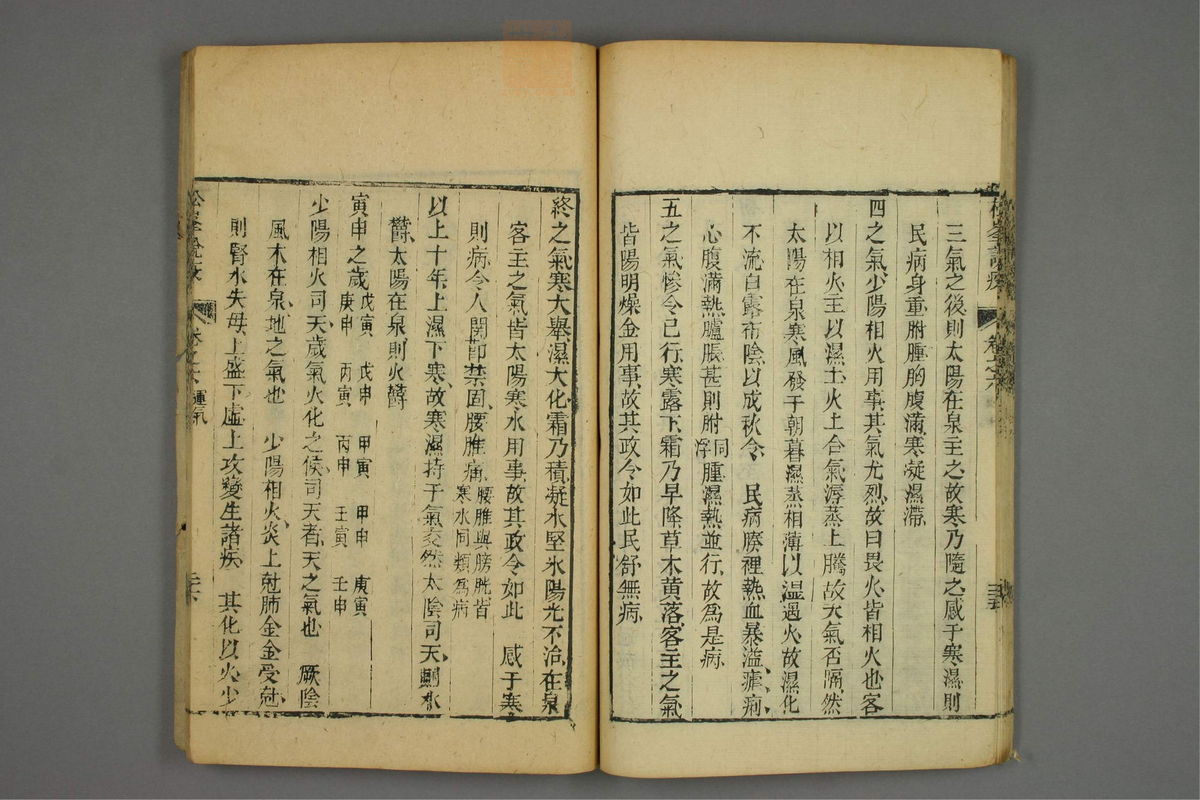 三氣之後則太陽在泉主之故寒乃隨之感于寒濕則
民病身重胕腫胸腹滿寒凝濕滯
四之氣少陽相火用事其氣尤烈故曰畏火皆相火也客
以相火主以濕土火土合氣溽蒸上騰故天氣否隔然
太陽在泉寒風發于朝暮濕蒸相薄以溫遇火故濕化
不流白露布陰以成秋令 民病腠裡熱血暴溢瘧痢
心腹滿熱臚脹甚則胕同浮腫濕熱並行故為是病
五之氣慘令已行寒露下霜乃早降草木黃落客主之氣
皆陽明燥金用事故其政令如此民舒無病
松峯說疫
卷之六
終之氣寒大舉濕大化霜乃積凝水堅氷陽光不治在泉
客主之氣皆太陽寒水用事故其政令如此 感于寒
則病令人關節禁固腰脽痛腰脽與膀胱皆寒水同類為病
以上十年上濕下寒故寒濕持于氣交然太陰司天則水
鬱太陽在泉則火鬱
寅申之歲 戊寅 戊申 甲寅 甲申 庚寅
庚申 丙寅 丙申 壬寅 壬申
少陽相火司天歲氣火化之候司天者天之氣也 厥陰
風木在泉地之氣也 少陽相火炎上尅肺金金受尅
則腎水失母上盛下虛上攻變生諸疾 其化以火少
松峯說疫
卷之六 運氣